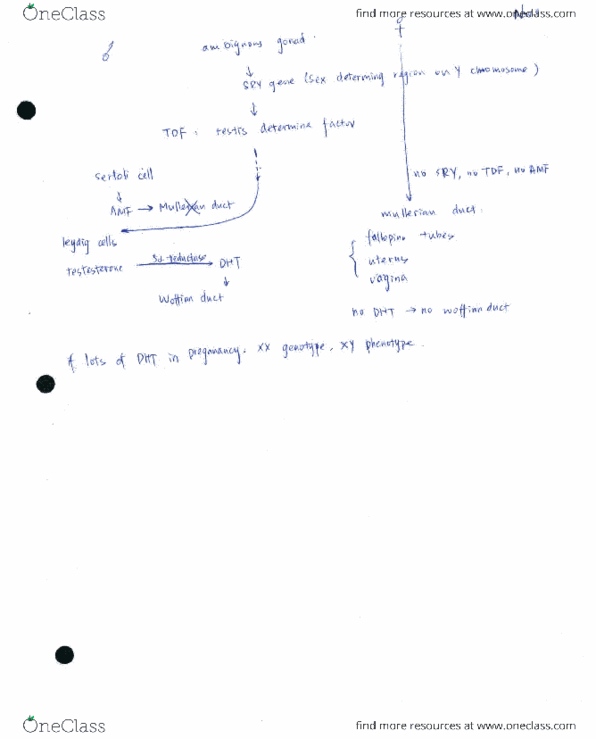 OneClass
find more resources at www.oneclass.com
♂
♀
ambignous gonad.
↓
SRY gene (sex determing region on Y chromosome)
↓
TDF: testis determine factor
sertoli cell
no SRY, no TDF, no AMF
↓
AMF → Mullerian duct
mullerian duct.
leydig cells
fallopino tubes
testesterone 5α reductase → DHT
uterus
↓
vagina
Woffian duct
no DHT → no woffian duct
if lots of DHT in pregonancy. XX genotype, XY phenotype.
OneClass
find more resources at www.oneclass.com